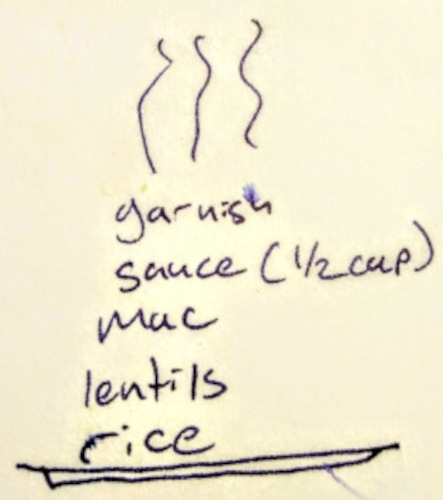 garnish
sauce (1/2 cup)
mac
lentils
rice